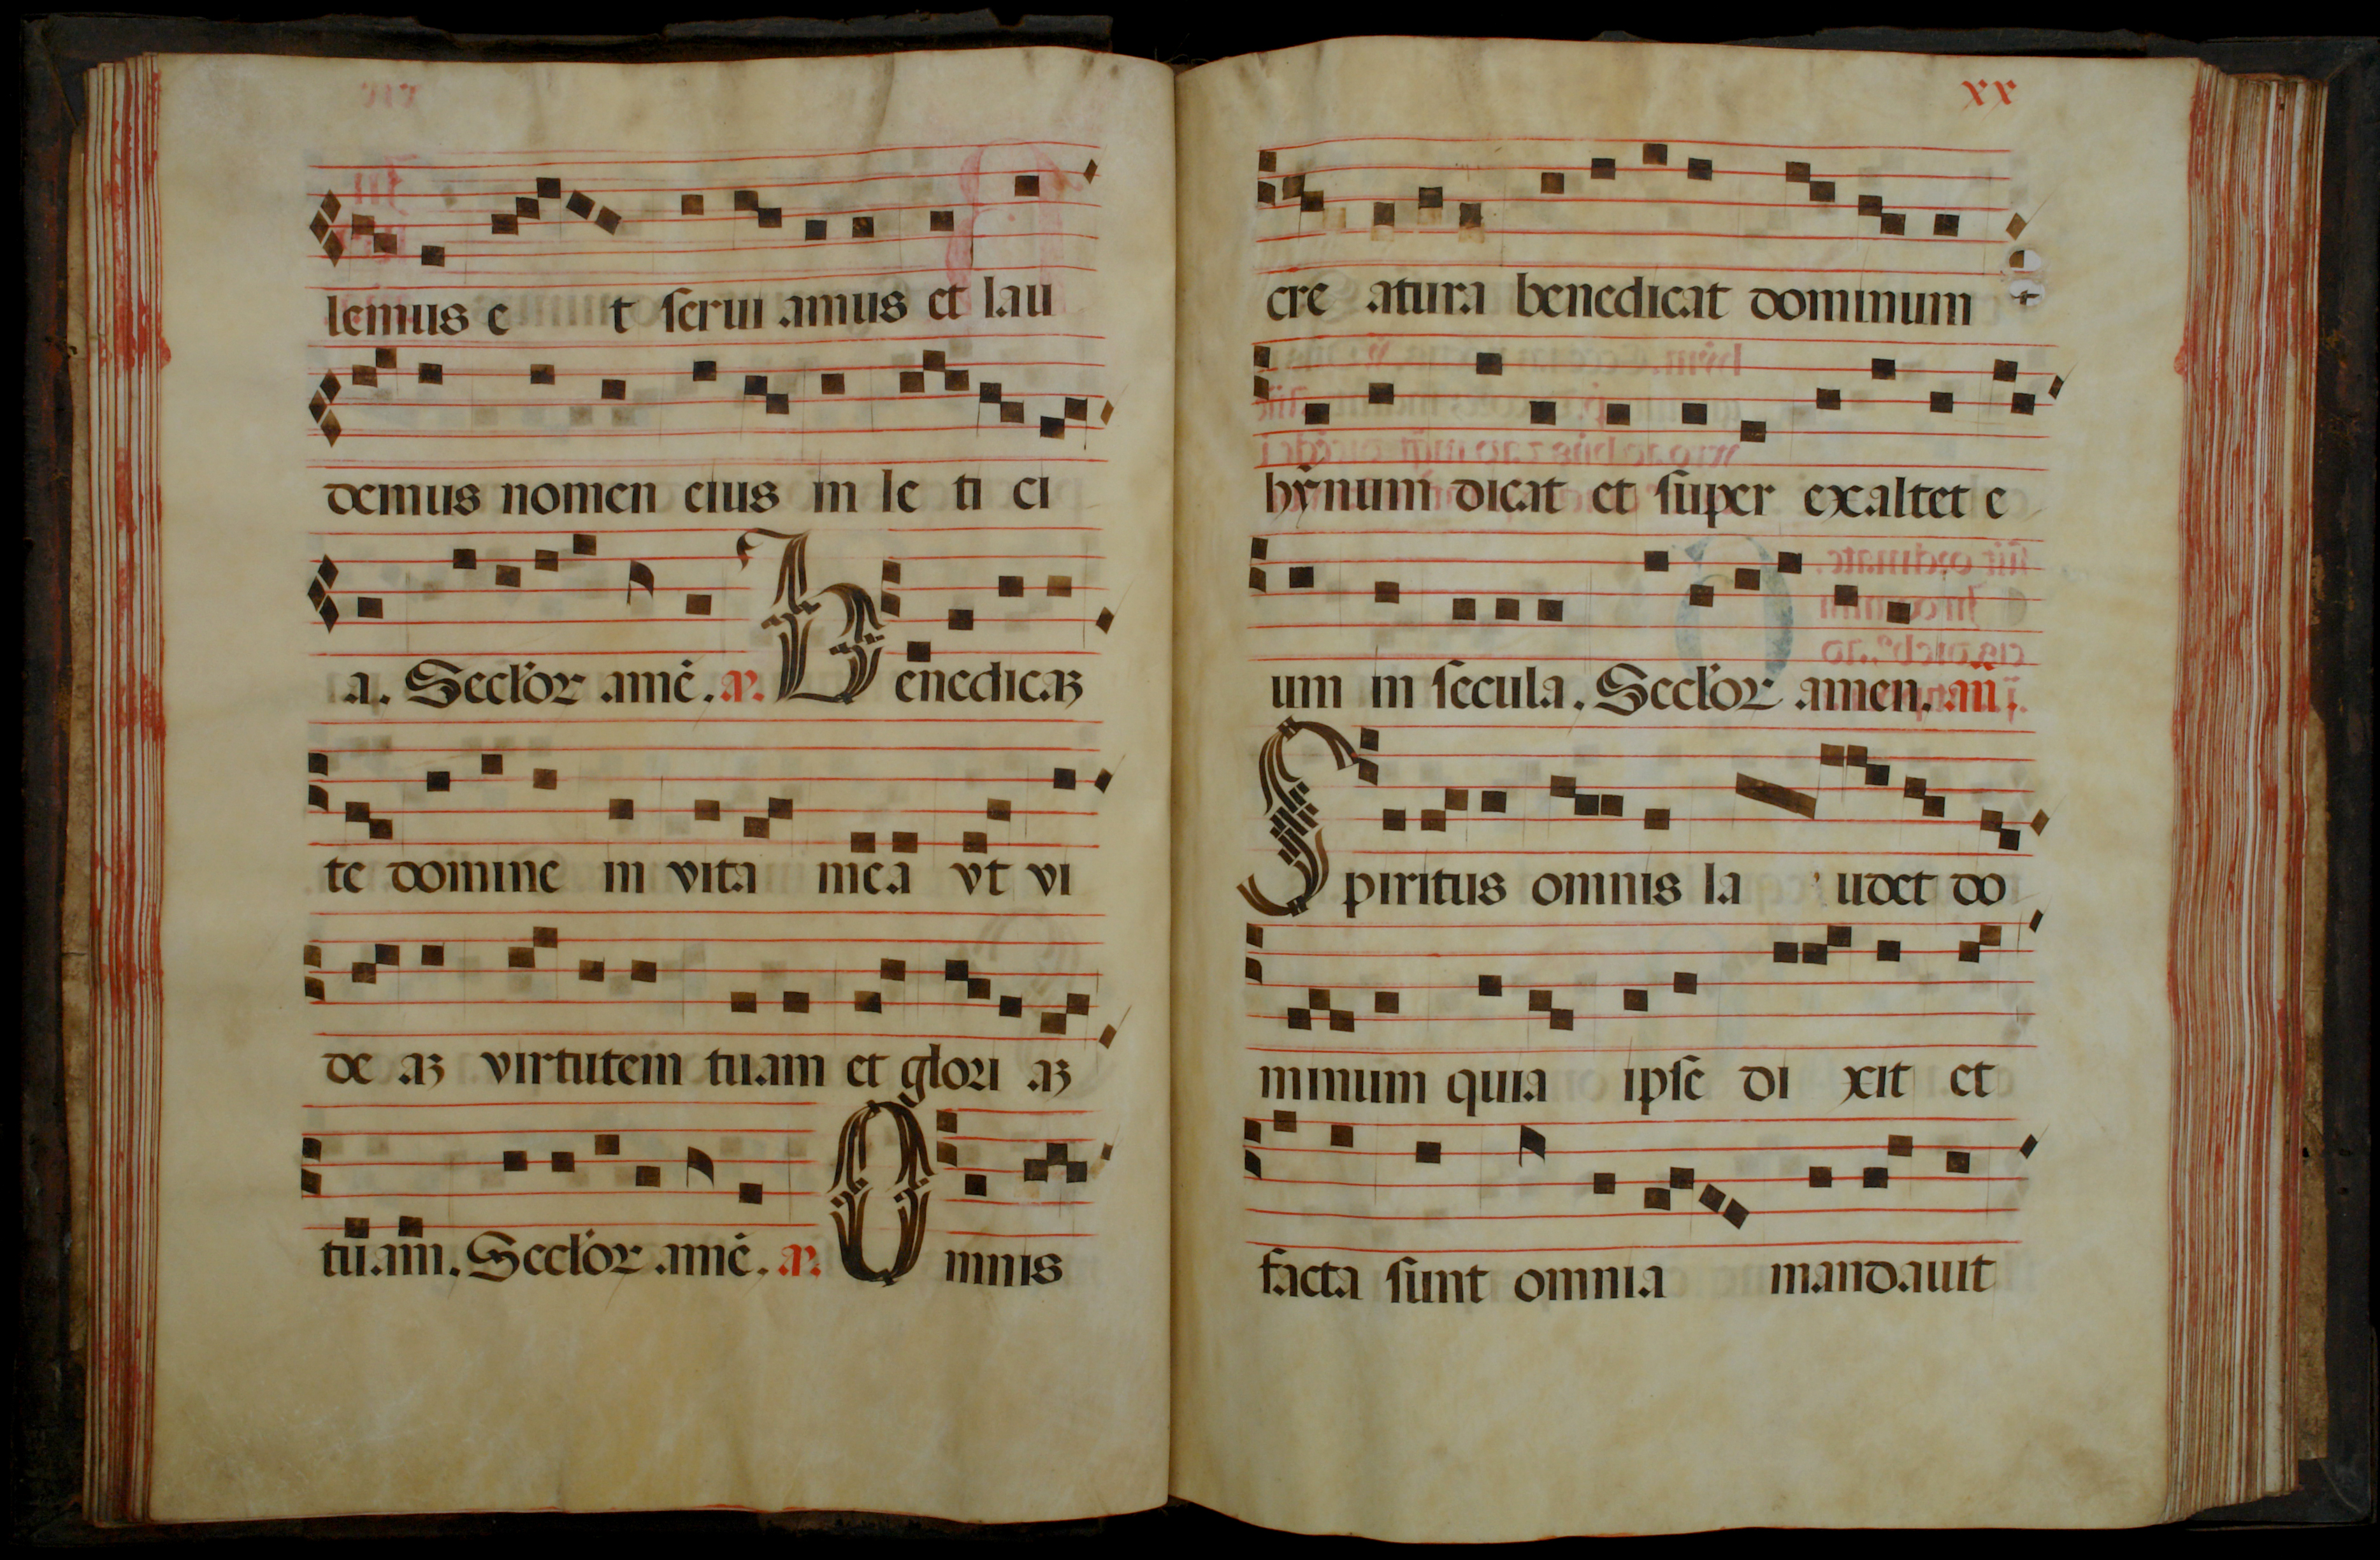 lemus e t serui amus et lau
demus nomen eius in le ti ci
a. Seclor ame. a. Benedicaʒ
te domine in vita mea vt vi
de aʒ virtutem tuam et glori aʒ
tuam. Seclor ame. a. Omnis
xx
cre atura benedicat dominum
hẏnum dicat et super exaltet e
um in secula. Seclor amen. añ.
Spiritus omnis la udet do
minum quia ipse di xit et
facta sunt omnia mandauit